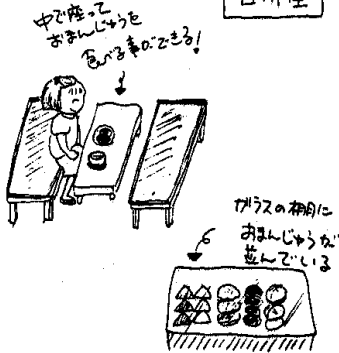 中で座って
おまんじゅうを
食べる事ができる!
ガラスの棚に
おまんじゅうが
並んでいる